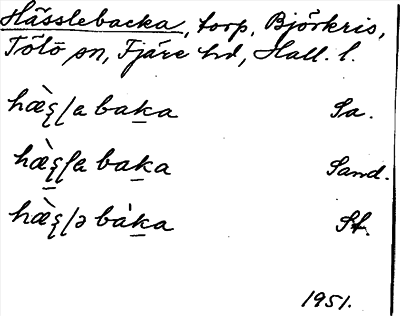 Hässlebacka, torp, Björkris,
Tölö sn, Fjäre hd, Hall. l.
hæ̀ʂʃa baka Sa.
hæ̀ʂʃa baka Sand.
hæ̀ʂʃə bàka St.
1951.